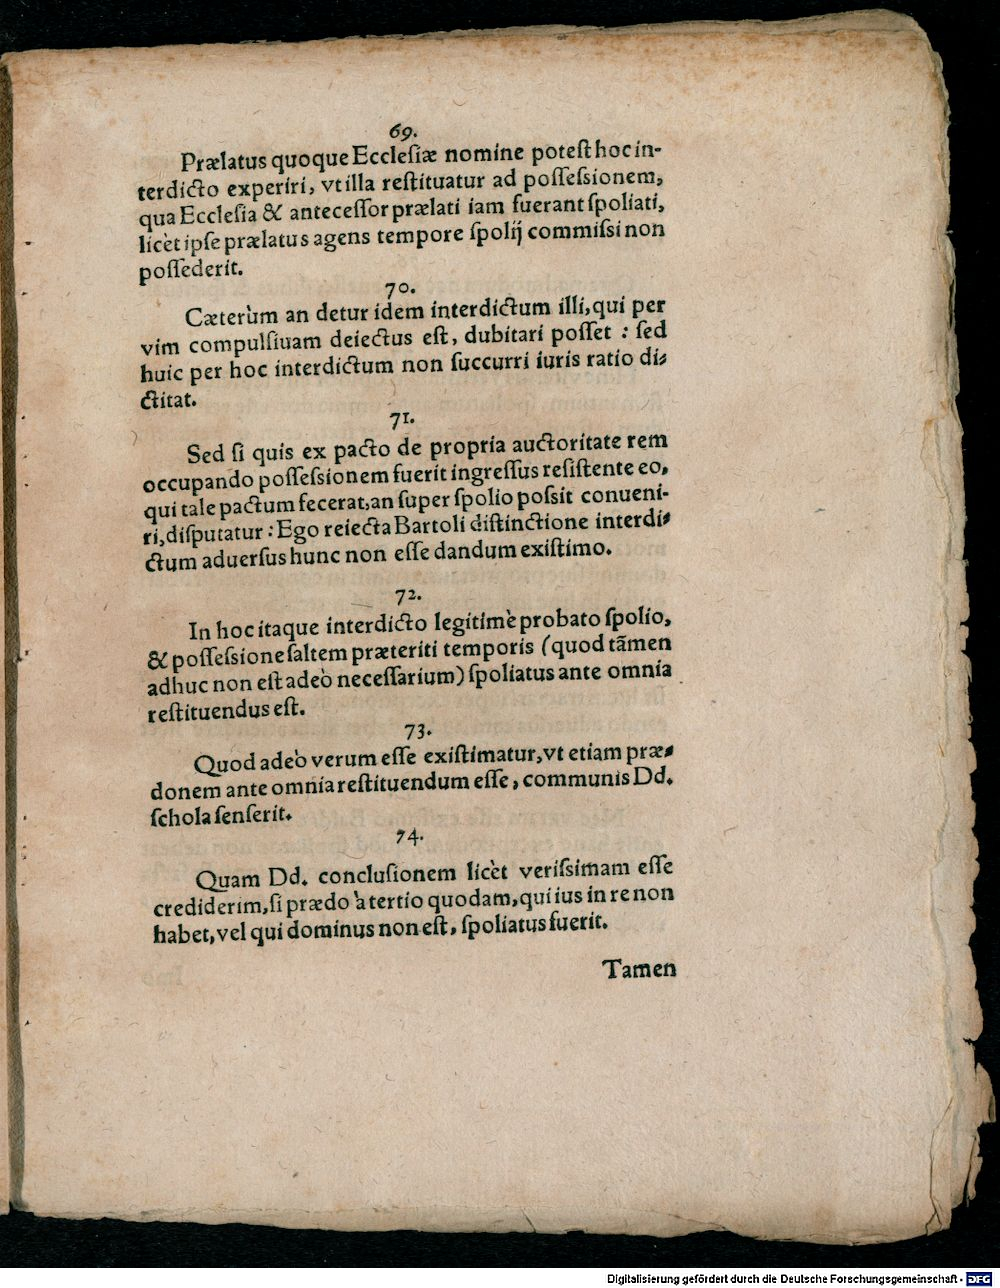 69.
Prælatus quoque Ecclesiæ nomine potest hoc in-
terdicto experiri, vt illa restituatur ad possessionem,
qua Ecclesia & antecessor prælati iam fuerant spoliati,
licèt ipse prælatus agens tempore spolij commissi non
possederit.
70.
Cæterùm an detur idem interdictum illi, qui per
vim compulsiuam deiectus est, dubitari posset : sed
huic per hoc interdictum non succurri iuris ratio di-
ctitat.
71.
Sed si quis ex pacto de propria auctoritate rem
occupando possessionem fuerit ingressus resistente eo,
qui tale pactum fecerat, an super spolio possit conueni-
ri, disputatur : Ego reiecta Bartoli distinctione interdi-
ctum aduersus hunc non esse dandum existimo.
72.
In hoc itaque interdicto legitimè probato spolio,
& possessione saltem præteriti temporis (quod tãmen
adhuc non est adeò necessarium) spoliatus ante omnia
restituendus est.
73.
Quod adeò verum esse existimatur, vt etiam præ-
donem ante omnia restituendum esse, communis Dd.
schola senserit.
74.
Quam Dd. conclusionem licèt verissimam esse
crediderim, si prædo à tertio quodam, qui ius in re non
habet, vel qui dominus non est, spoliatus fuerit.
Tamen
Digitalisierung gefördert durch die Deutsche Forschungsgemeinschaft - DFG